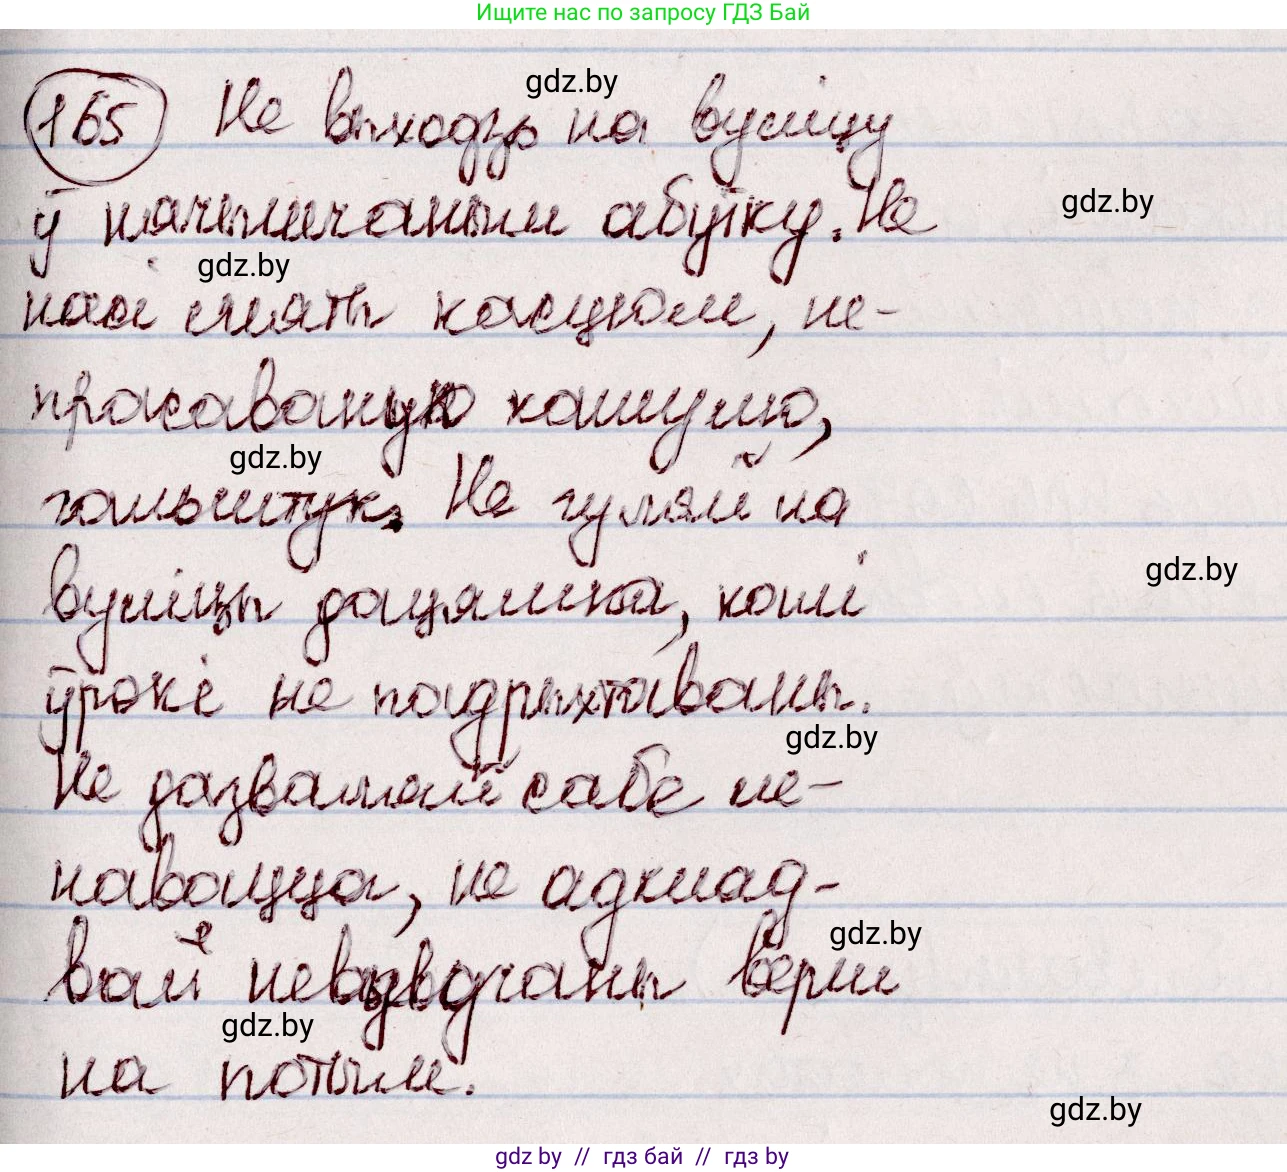 Ищите нас по запросу ГДЗ Бай
gdz.by
165 Не выходзь на вуліцу
gdz.by
ў нячышчаным абутку. Не
gdz.by
насі зняты касцюм, не-
прасаваную кашулю,
gdz.by
гальштук. Не гуляй на
gdz.by
вуліцы дацямна, калі
ўрокі не падрыхтаваны.
gdz.by
Не дазваляй сабе не-
навацца, не адклад-
gdz.by
вай невывучаны верш
gdz.by
на потым.
gdz.by
gdz by // гдз бай // гдз by